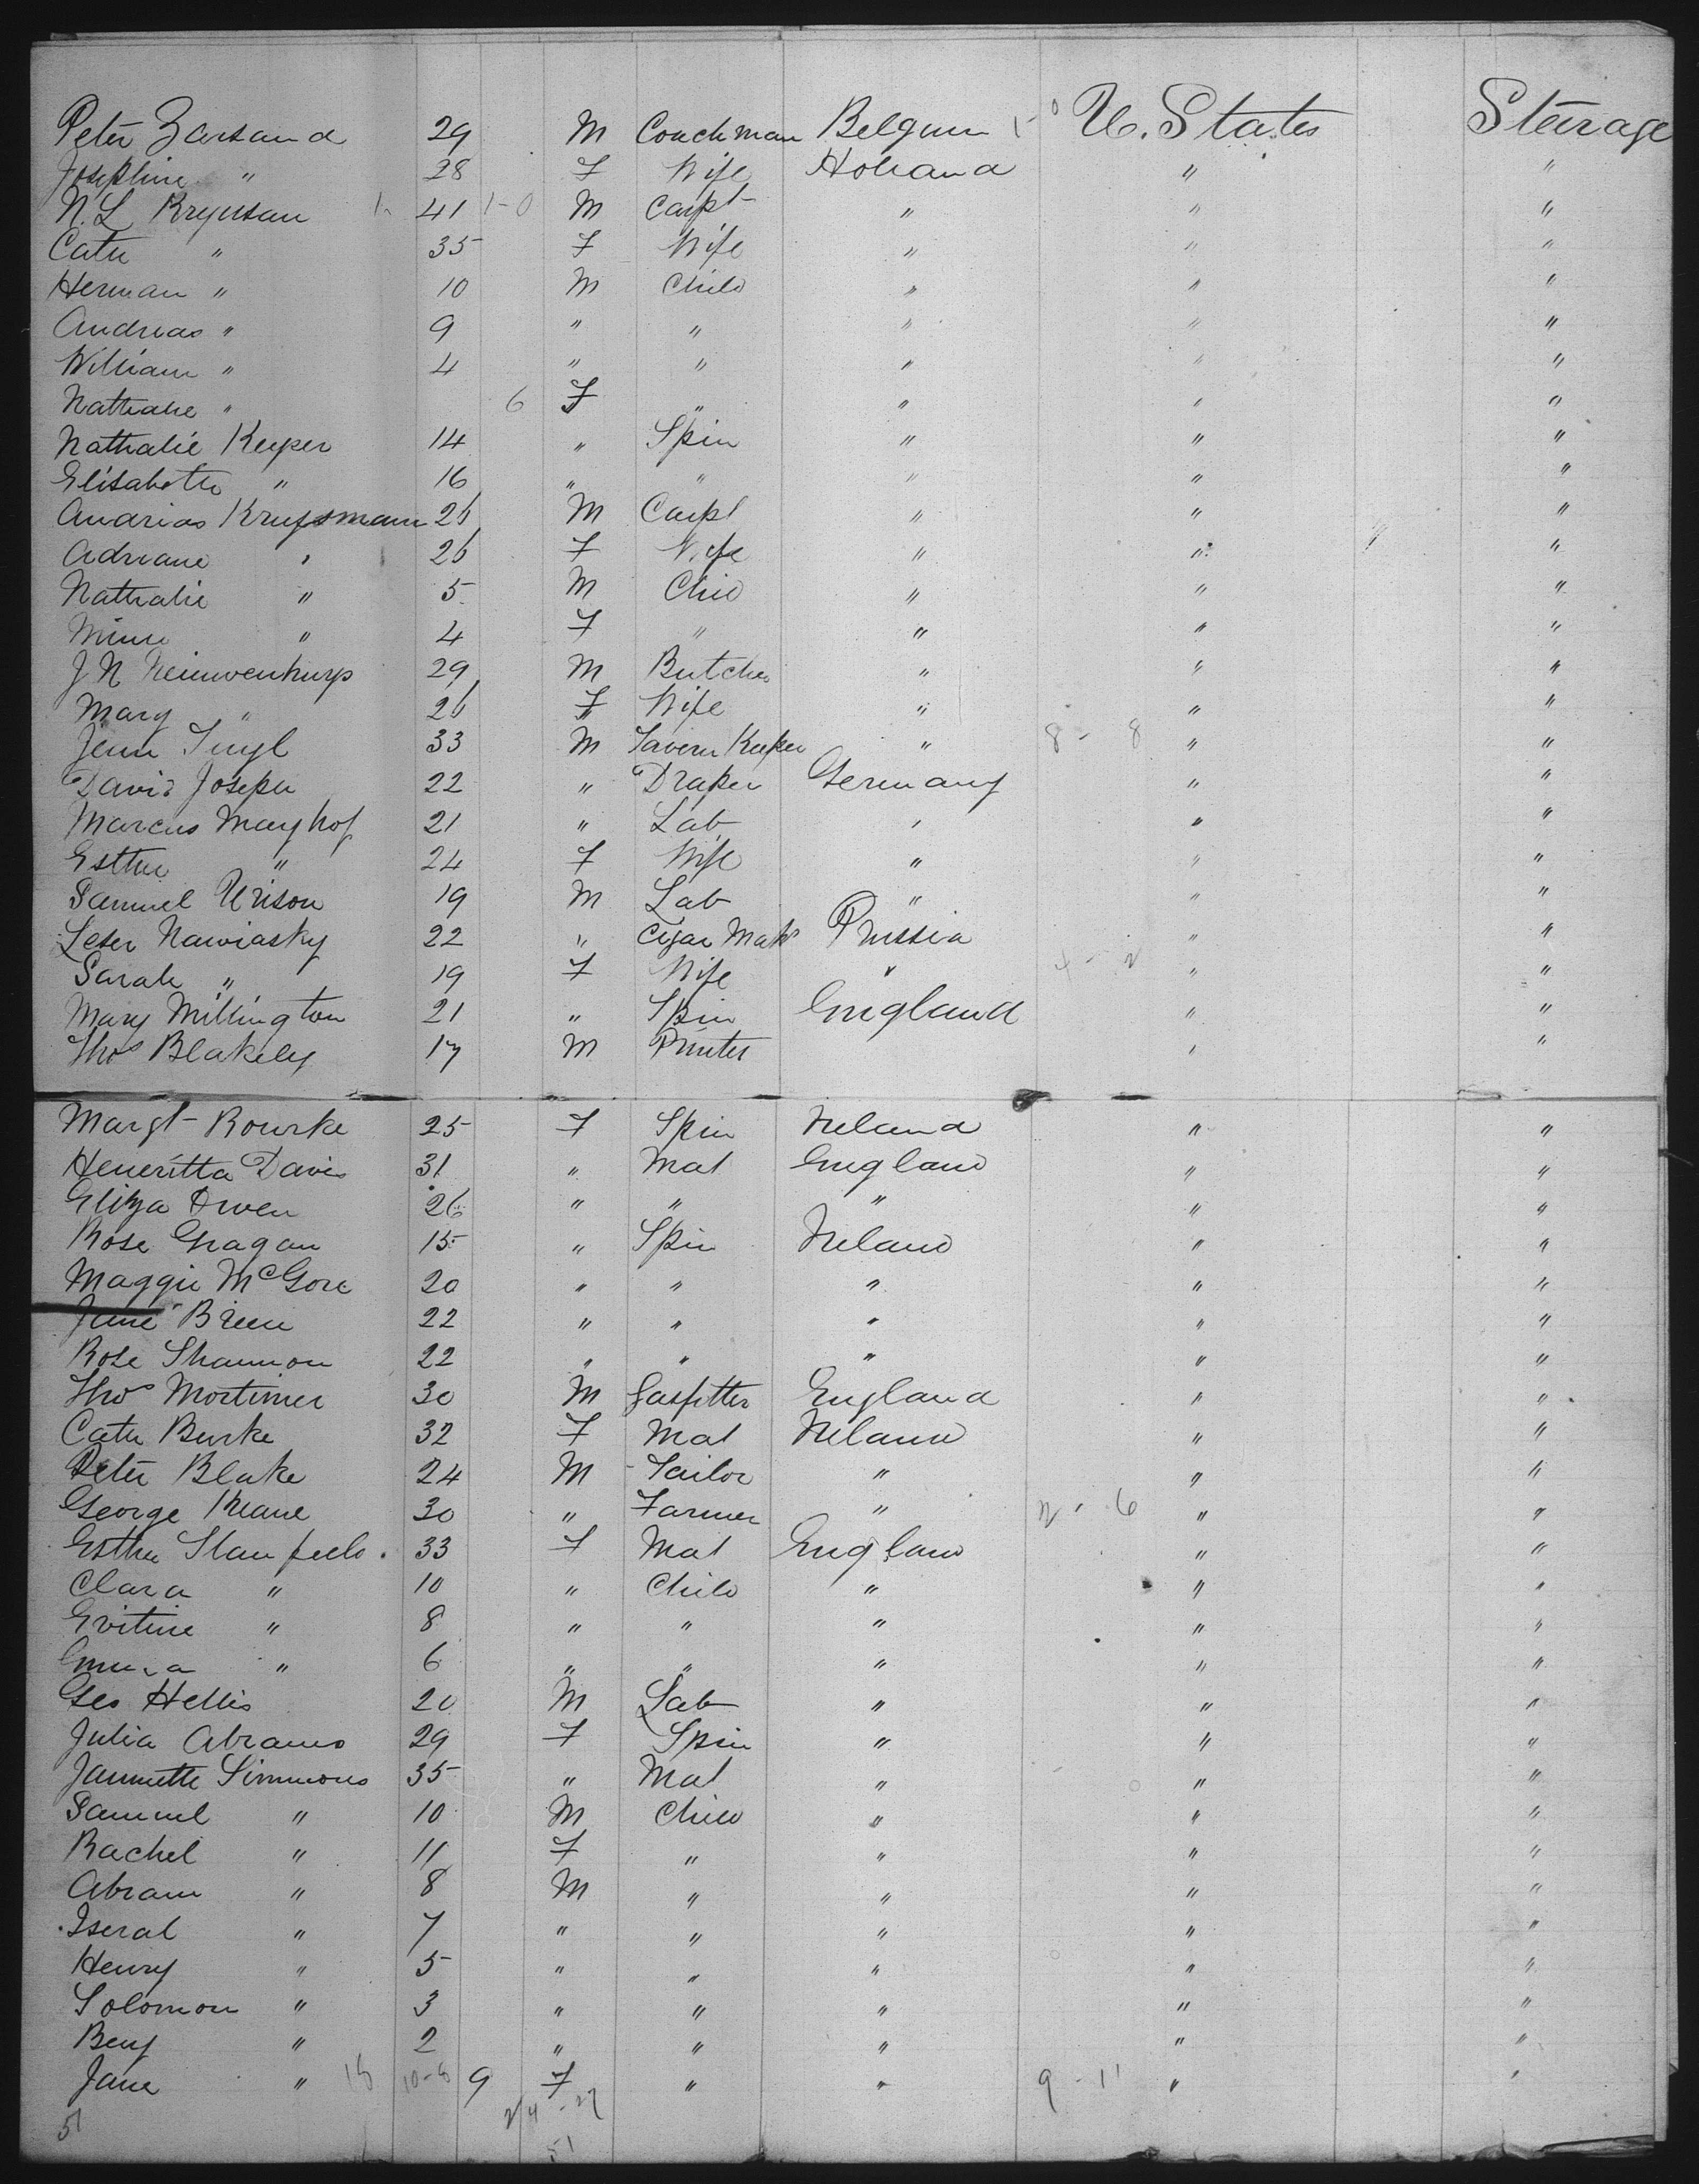 Peter Zarsand 29 M Coachman Belgium U. States Steerage
Josephine " 28 F Wife Holland " "
N. L. Kryussan 41 M Carpt " " "
Cath " 35 F Wife " " "
Herman " 10 M Child " " "
Andreas " 9 " " " " "
William " 4 " " " " "
Nathalie " 6 F " " " "
Nathalie Keyper 14 " Spin " " "
Elisabeth " 16 " " " " "
Andrias Kruysmann 26 M Carpt " " "
Adriane " 26 F Wife " " "
Nathalie " 5 M Child " " "
Minne " 4 F " " " "
J N Neiuwenhuys 29 M Butcher " " "
Mary " 26 F Wife " " "
Jenn Tuyl 33 M Tavern Keeper " 8 - 8 " "
David Joseph 22 " Draper Germany " "
Marcus Mayhof 21 " Lab " " "
Esther " 24 F Wife " " "
Samuel Urison 19 M Lab " " "
Leser Nawiasky 22 " Cigar Makr Prussia " "
Sarah " 19 F Wife " " "
Mary Millington 21 " Spin England " "
Thos Blakeley 17 M Printer " "
Margt Rourke 25 F Spin Ireland " "
Heneritta Davis 31 " Mat England " "
Eliza Owen 26 " " " " "
Rose Gragan 15 " Spin Ireland " "
Maggie McGore 20 " " " " "
Jane Breen 22 " " " " "
Rose Shannon 22 " " " " "
Thos Mortimer 30 M Gasfitter England " "
Cath Burke 32 F Mat Ireland " "
Peter Blake 24 M Tailor " " "
George Keane 30 " Farmer " 2 - 6 " "
Esther Stanfield 33 F Mat England " "
Clara " 10 " Child " " "
Evitine " 8 " " " " "
Emma " 6 " " " " "
Geo Hellis 20 M Lab " " "
Julia Abrams 29 F Spin " " "
Jannette Simmons 35 " Mat " " "
Samuel " 10 M Child " " "
Rachel " 11 F " " " "
Abram " 8 M " " " "
Iseral " 7 " " " " "
Henry " 5 " " " " "
Solomon " 3 " " " " "
Benj " 2 " " " " "
Jane " 15 10-6 9 F " " 9 - 11 " "
24 - 27
51 51